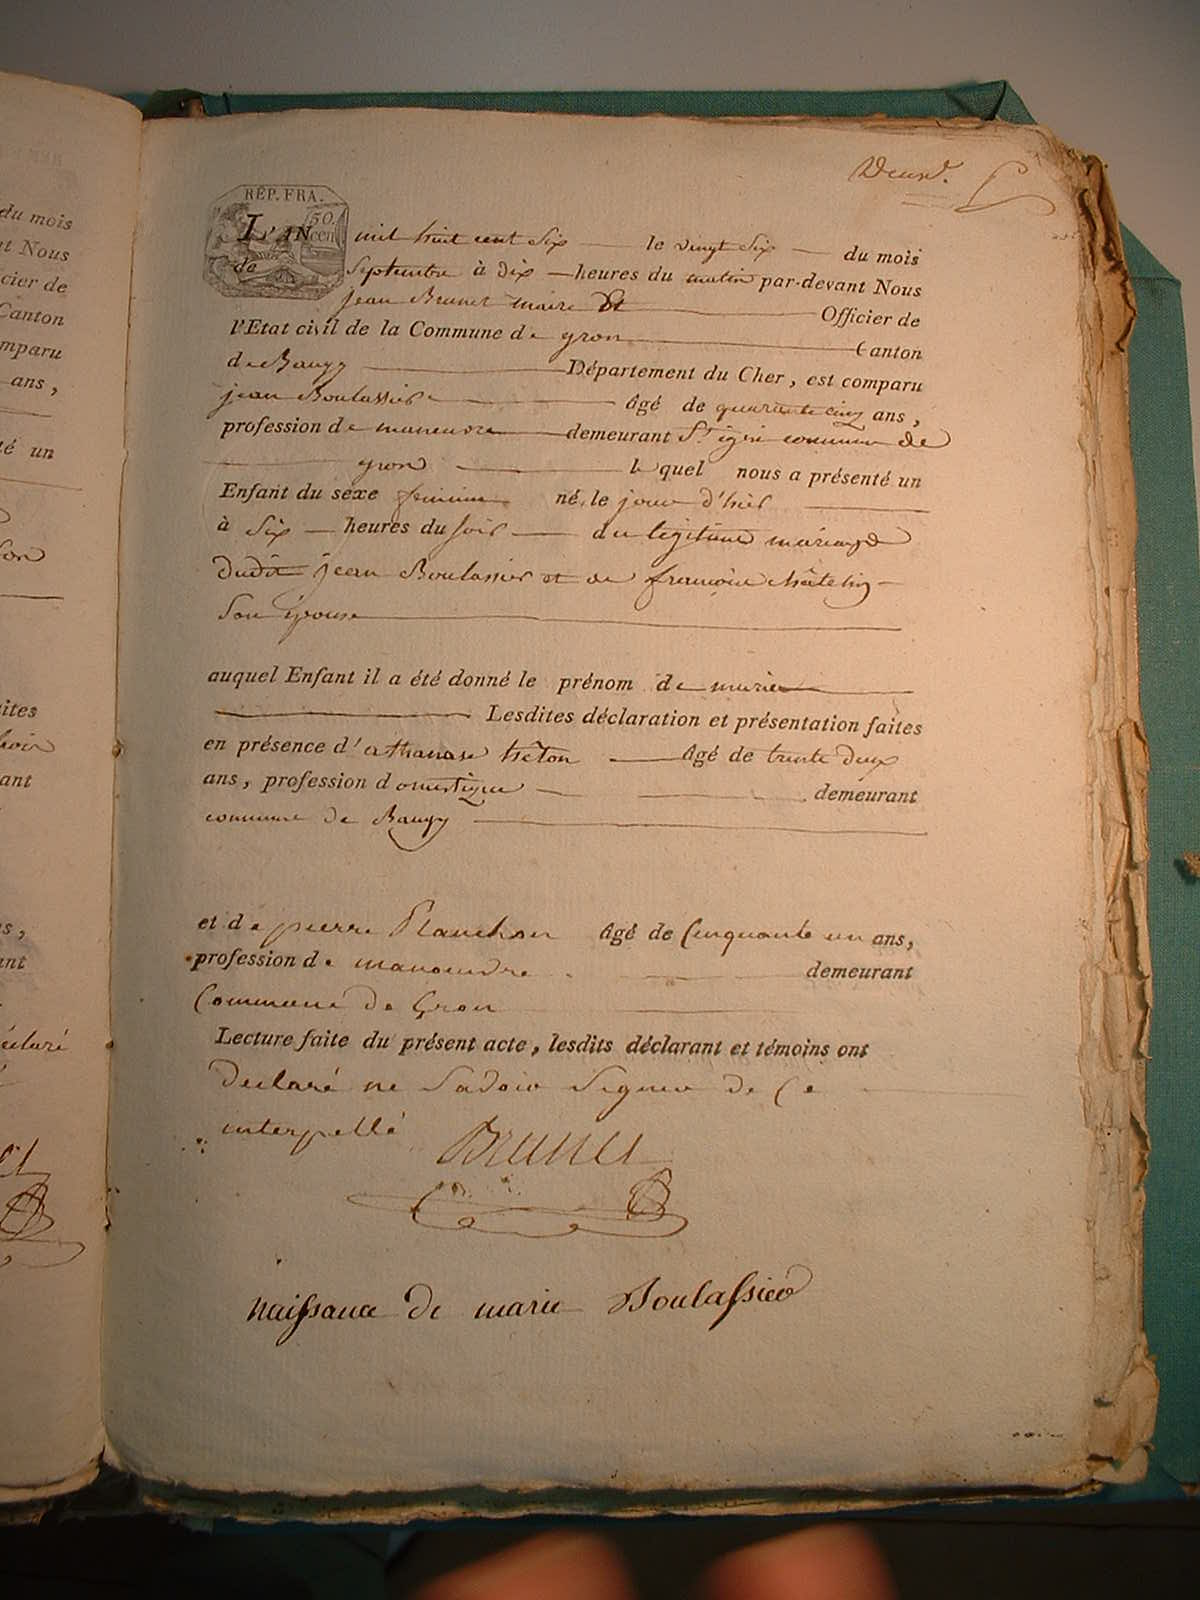 Deux d.
RÉP. FRA.
50.
cen
L'AN mil huit cent Six le vingt Six du mois
de Septembre à dix heures du matin par-devant Nous
jean Brunet maire et Officier de
l'Etat civil de la Commune de gron Canton
de Baugy Département du Cher, est comparu
jean Boulassier âgé de quarante cinq ans,
profession de maneuvre demeurant St igni commune de
gron lequel nous a présenté un
Enfant du sexe feminin né le jour d'hier
à Six heures du soir du légitime mariage
dudit jean Boulassier et de françoise Châtelin
Son épouse
auquel Enfant il a été donné le prénom de marie
Lesdites déclaration et présentation faites
en présence d'athanase âgé de trente deux
ans, profession domestique demeurant
commune de Baugy
et de pierre Planchon âgé de Cinquante un ans,
profession de manoeudre demeurant
Commune de Gron
Lecture faite du présent acte, lesdits déclarant et témoins ont
declaré ne Savoir Signer de Ce
interpellé Brunet
Naissance de marie Boulassier
du mois
t Nous
cier de
Canton
mparu
ans,
té un
ites
ant
s,
ant
éclaré